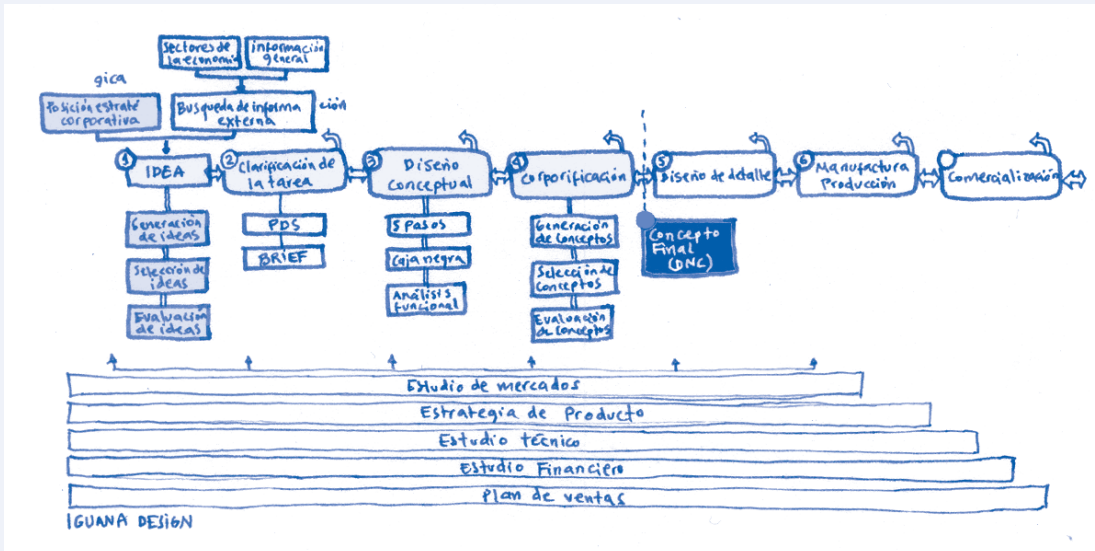 Sectores de
la economía
información
general
gica
Posición estraté
corporativa
Busqueda de informa
ción
externa
1
IDEA
2
Clarificación de
la tarea
3
Diseño
Conceptual
4
Corporificación
5
Diseño de detalle
6
Manufactura
Producción
Comercialización
Generación
de ideas
Selección de
ideas
Evaluación
de ideas
PDS
BRIEF
5 Pasos
Caja negra
Análisis
Funcional
Generación
de Conceptos
Selección de
Conceptos
Evaluación
de Conceptos
Concepto
Final
(DNC)
Estudio de mercados
Estrategia de Producto
Estudio técnico
Estudio Financiero
Plan de ventas
IGUANA DESIGN